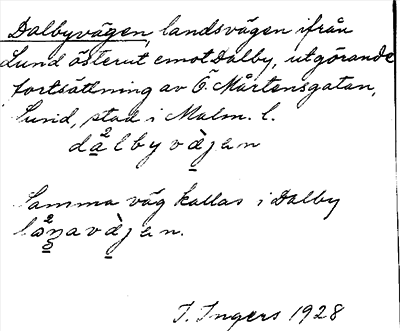 Dalbyvägen, landsvägen ifrån
Lund österut emot Dalby, utgörande
fortsättning av Ö. Mårtensgatan,
Lund, stad i Malm. l.
da²lbyvàjen
Samma väg kallas i Dalby
avàjen.
I. Ingers 1928